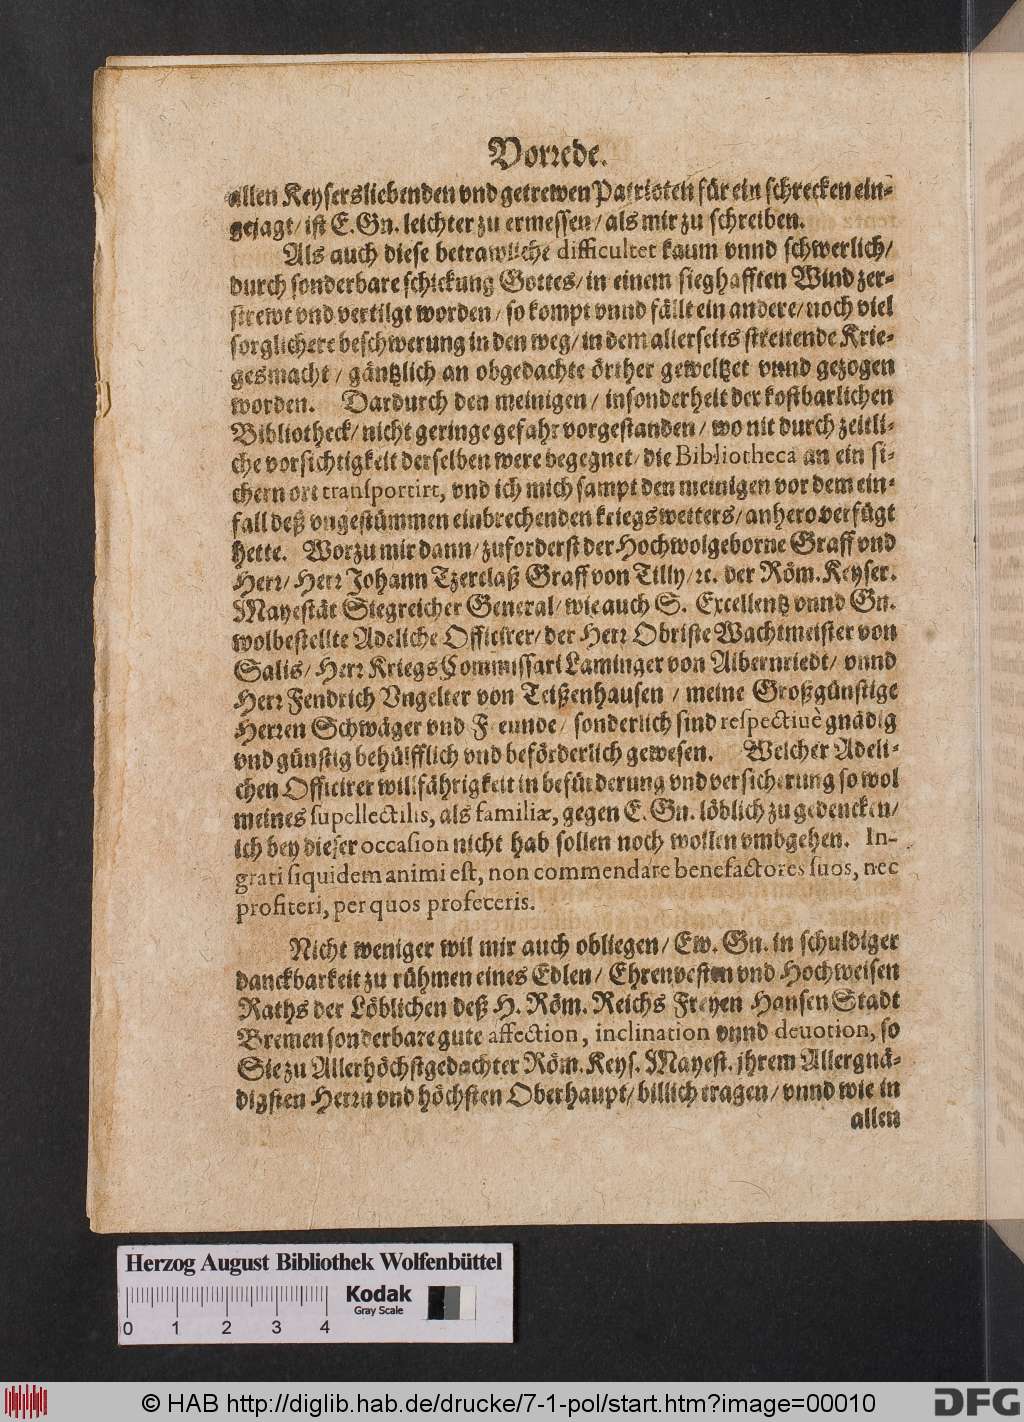 Vorrede.
allen Keysersliebenden vnd getrewen Patrioten für ein schrecken ein-
gejagt / ist E. Gn. leichter zu ermessen / als mir zu schreiben.
Als auch diese betrawliche difficultet kaum vnnd schwerlich /
durch sonderbare schickung Gottes / in einem sieghafften Wind zer-
strewt vnd vertilgt worden / so kompt vnnd fällt ein andere / noch viel
sorglichere beschwerung in den weg / in dem allerseits streitende Krie-
gesmacht / gäntzlich an obgedachte örther geweltzet vnnd gezogen
worden. Dardurch den meinigen / insonderheit der kostbarlichen
Bibliotheck / nicht geringe gefahr vorgestanden / wo nit durch zeitli-
che vorsichtigkeit derselben were begegnet / die Bibliotheca an ein si-
chern ort transportirt, vnd ich mich sampt den meinigen vor dem ein-
fall deß vngestümmen einbrechenden kriegswetters / anhero verfügt
hette. Worzu mir dann / zuforderst der Hochwolgeborne Graff vnd
Herr / Herr Johann Tzerclaß Graff von Tilly / ꝛc. der Röm. Keyser.
Mayestät Siegreicher General / wie auch S. Excellentz vnnd Gn.
wolbestellte Adeliche Officirer / der Herr Obriste Wachtmeister von
Salis / Herr Kriegs Commissari Laminger von Albernriedt / vnnd
Herr Fendrich Vngelter von Teißenhausen / meine Großgünstige
Herren Schwäger vnd Freunde / sonderlich sind respectiuè gnädig
vnd günstig behülfflich vnd beförderlich gewesen. Welcher Adeli-
chen Officirer willfährigkeit in befürderung vnd versicherung so wol
meines supellectilis, als familiæ, gegen E. Gn. löblich zu gedencken /
ich bey dieser occasion nicht hab sollen noch wollen vmbgehen. In-
grati siquidem animi est, non commendare benefactores suos, nec
profiteri, per quos profeceris.
Nicht weniger wil mir auch obliegen / Ew. Gn. in schuldiger
danckbarkeit zu rühmen eines Edlen / Ehrenvesten vnd Hochweisen
Raths der Löblichen deß H. Röm. Reichs Freyen Hansen Stadt
Bremen sonderbare gute affection, inclination vnnd deuotion, so
Sie zu Allerhöchstgedachter Röm. Keys. Mayest. jhrem Allergnä-
digsten Herrn vnd höchsten Oberhaupt / billich tragen / vnnd wie in
allen
Herzog August Bibliothek Wolfenbüttel
Kodak
Gray Scale
0 1 2 3 4
© HAB http://diglib.hab.de/drucke/7-1-pol/start.htm?image=00010
DFG